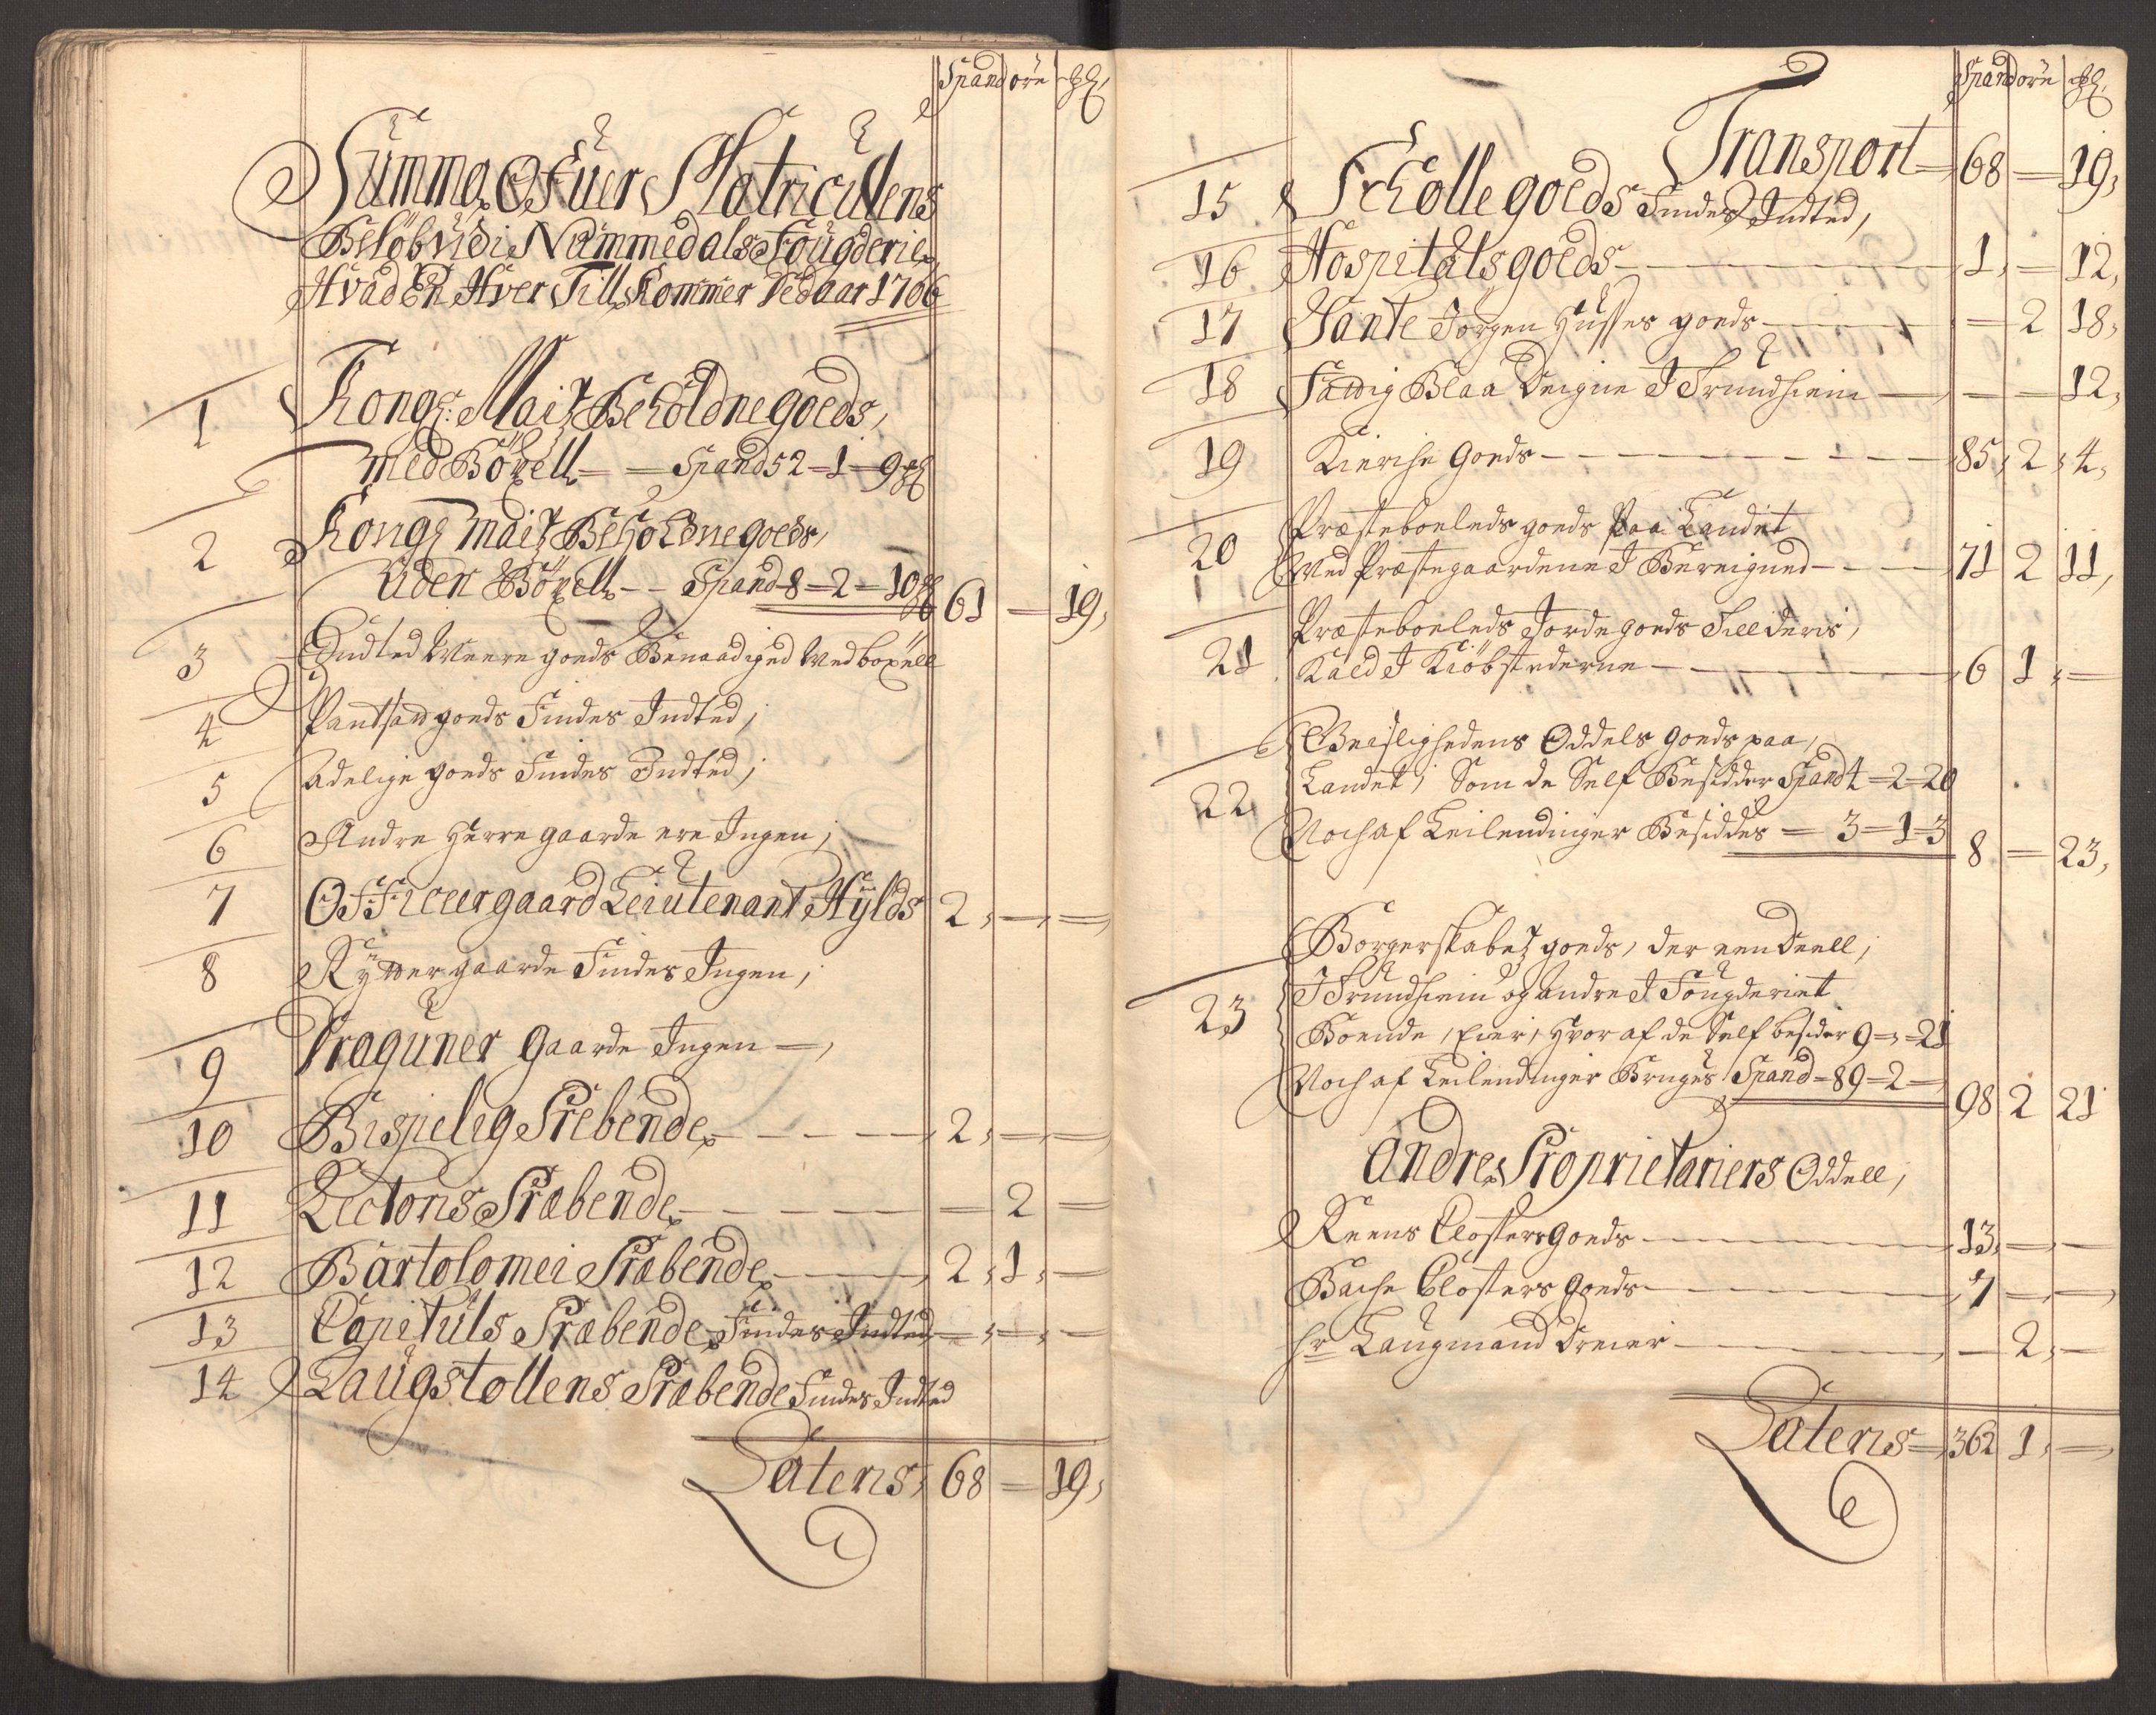 Spand öre mkl
Summa Ofuer Matriculens
Beløb Udi Nummedals Fougderie
Hvad En Hver Till Kommer Ved aar 1706
1 Kongl: Maitz Beholdne goeds,
med Böxell — — Spand 52 — 1 — 9 mkl
2 Kongl maitz Beholdne goeds,
Uden Böxell — — Spand 8 — 2 — 10 mkl 61 — 19,
3 Indted Veere goeds Benaadiged Med boxell
4 Pantsatt goeds Findes Indted,
5 Adelige goeds Findes Indted,
6 Andre Herre gaarde ere Ingen,
7 Officeer gaard Leiutenant Hylds 2, — —
8 Rytter gaarde Findes Ingen,
9 Draguner gaarde Ingen —,
10 Bispelig Prebende — — — 2, — —
11 Lectoris Præbende — — — — 2 —
12 Bartolomei Præbende — — 2, 1, —
13 Capituls Præbende Findes Indted — — —
14 Laugstollens Præbende Findes Indted
Lateris, 68 — 19,
Spand öre mkl
Transport 68 — 19,
15 Scholle goeds Findes Indted,
16 Hospitals goeds — 1, — 12,
17 Jørgen Husses goeds — — 2 18,
18 Fattig Blaa Deigne I Trundhiem — — — 12,
19 Kirche goeds — — — 85, 2, 4,
20 Præsteboeleds goeds Paa Landet
Med Præstegaardene I Bereigned — — 71 2 11,
21 Præsteboeleds Jorde goeds Till deris,
Kald I Kiöbstederne — 6 1, —
Geistlighedens Oddels goeds paa,
22 Landet, Som de Self Besidder Spand 4 — 2 — 20
Noch af Leilendinger Besiddes — 3 — 1 — 3 8 — 23,
Borgerskabetz goeds, der een Deell,
I Trundhiem og andre I Fougderiet
23 Boende, Eier, Hvor af de Self besider 9 — , — 21
Noch af Leilendinger Bruges Spand — 89 — 2 — 98 2 21
Andre Proprietariers Oddell,
Reens Closters goeds — 13, — —
Bache Closters goeds — 7 — —
hr Laugmand Dreier — — 2, —
Lateris 362 1, —